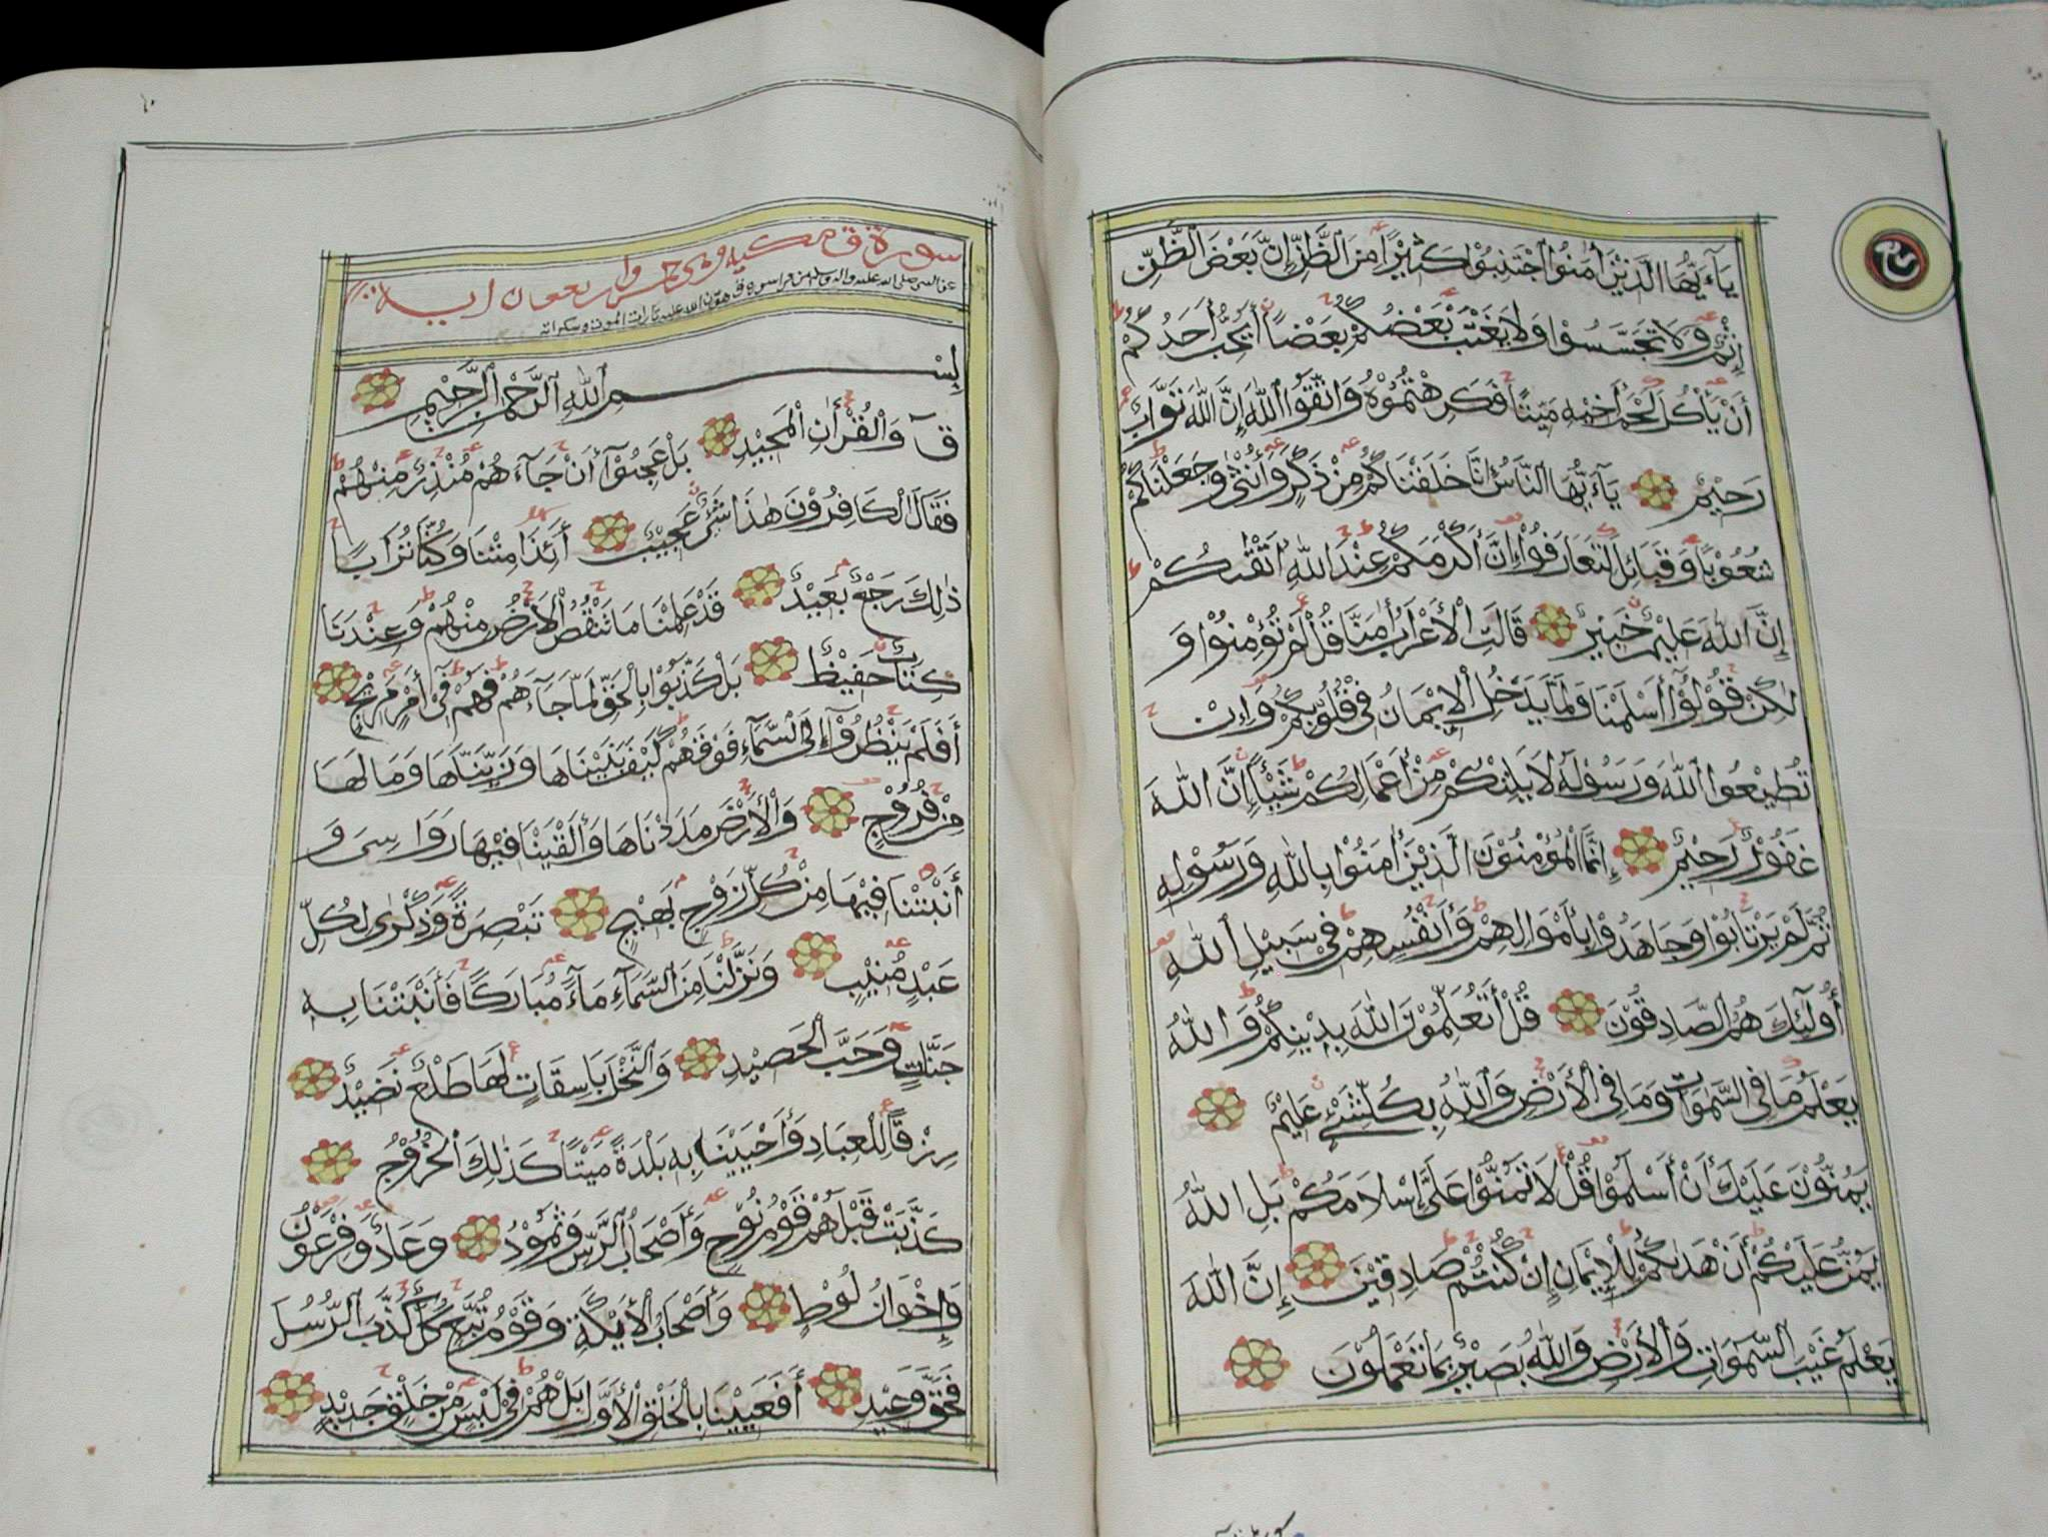 يَآءَيُّهَا الَّذِيْنَ اٰمَنُوْا اجْتَنِبُوْا كَثِيْرًا مِنَ الظَّنِّ اِنَّ بَعْضَ الظَّنِّ
اِثْمٌ وَلَا تَجَسَّسُوْا وَلَا يَغْتَبْ بَعْضُكُمْ بَعْضًا أَيُحِبُّ أَحَدُكُمْ
أَنْ يَأْكُلَ لَحْمَ أَخِيْهِ مَيْتًا فَكَرِهْتُمُوْهُ وَاتَّقُوا اللّٰهَ إِنَّ اللّٰهَ تَوَّابٌ
رَحِيْمٌ يَآءَيُّهَا النَّاسُ إِنَّا خَلَقْنَاكُمْ مِنْ ذَكَرٍ وَأُنْثٰى وَجَعَلْنَاكُمْ
شُعُوْبًا وَقَبَائِلَ لِتَعَارَفُوْا إِنَّ أَكْرَمَكُمْ عِنْدَ اللّٰهِ أَتْقٰىكُمْ
إِنَّ اللّٰهَ عَلِيْمٌ خَبِيْرٌ قَالَتِ الْأَعْرَابُ اٰمَنَّا قُلْ لَمْ تُؤْمِنُوْا وَ
لٰكِنْ قُوْلُوْا أَسْلَمْنَا وَلَمَّا يَدْخُلِ الْإِيْمَانُ فِيْ قُلُوْبِكُمْ وَإِنْ
تُطِيْعُوا اللّٰهَ وَرَسُوْلَهُ لَا يَلِتْكُمْ مِنْ أَعْمَالِكُمْ شَيْئًا إِنَّ اللّٰهَ
غَفُوْرٌ رَحِيْمٌ إِنَّمَا الْمُؤْمِنُوْنَ الَّذِيْنَ اٰمَنُوْا بِاللّٰهِ وَرَسُوْلِهِ
ثُمَّ لَمْ يَرْتَابُوْا وَجَاهَدُوْا بِأَمْوَالِهِمْ وَأَنْفُسِهِمْ فِيْ سَبِيْلِ اللّٰهِ
أُولٰئِكَ هُمُ الصَّادِقُوْنَ قُلْ أَتُعَلِّمُوْنَ اللّٰهَ بِدِيْنِكُمْ وَاللّٰهُ
يَعْلَمُ مَا فِي السَّمٰوَاتِ وَمَا فِي الْأَرْضِ وَاللّٰهُ بِكُلِّ شَيْءٍ عَلِيْمٌ
يَمُنُّوْنَ عَلَيْكَ أَنْ أَسْلَمُوْا قُلْ لَا تَمُنُّوْا عَلَيَّ إِسْلَامَكُمْ بَلِ اللّٰهُ
يَمُنُّ عَلَيْكُمْ أَنْ هَدٰىكُمْ لِلْإِيْمَانِ إِنْ كُنْتُمْ صَادِقِيْنَ إِنَّ اللّٰهَ
يَعْلَمُ غَيْبَ السَّمٰوَاتِ وَالْأَرْضِ وَاللّٰهُ بَصِيْرٌ بِمَا تَعْمَلُوْنَ
سورة ق مكية وهي خمس واربعون اية
بِسْمِ اللّٰهِ الرَّحْمٰنِ الرَّحِيْمِ
قٓ وَالْقُرْاٰنِ الْمَجِيْدِ بَلْ عَجِبُوْآ أَنْ جَآءَهُمْ مُنْذِرٌ مِنْهُمْ
فَقَالَ الْكَافِرُوْنَ هٰذَا شَيْءٌ عَجِيْبٌ أَئِذَا مِتْنَا وَكُنَّا تُرَابًا
ذٰلِكَ رَجْعٌ بَعِيْدٌ قَدْ عَلِمْنَا مَا تَنْقُصُ الْأَرْضُ مِنْهُمْ وَعِنْدَنَا
كِتَابٌ حَفِيْظٌ بَلْ كَذَّبُوْا بِالْحَقِّ لَمَّا جَآءَهُمْ فَهُمْ فِيْ أَمْرٍ مَرِيْجٍ
أَفَلَمْ يَنْظُرُوْآ إِلَى السَّمَآءِ فَوْقَهُمْ كَيْفَ بَنَيْنَاهَا وَزَيَّنّٰهَا وَمَا لَهَا
مِنْ فُرُوْجٍ وَالْأَرْضَ مَدَدْنَاهَا وَأَلْقَيْنَا فِيْهَا رَوَاسِيَ وَ
أَنْبَتْنَا فِيْهَا مِنْ كُلِّ زَوْجٍ بَهِيْجٍ تَبْصِرَةً وَذِكْرٰى لِكُلِّ
عَبْدٍ مُنِيْبٍ وَنَزَّلْنَا مِنَ السَّمَآءِ مَآءً مُبَارَكًا فَأَنْبَتْنَا بِهِ
جَنَّاتٍ وَحَبَّ الْحَصِيْدِ وَالنَّخْلَ بَاسِقَاتٍ لَهَا طَلْعٌ نَضِيْدٌ
رِزْقًا لِلْعِبَادِ وَأَحْيَيْنَا بِهِ بَلْدَةً مَيْتًا كَذٰلِكَ الْخُرُوْجُ
كَذَّبَتْ قَبْلَهُمْ قَوْمُ نُوْحٍ وَأَصْحَابُ الرَّسِّ وَثَمُوْدُ وَعَادٌ وَفِرْعَوْنُ
وَإِخْوَانُ لُوْطٍ وَأَصْحَابُ الْأَيْكَةِ وَقَوْمُ تُبَّعٍ كُلٌّ كَذَّبَ الرُّسُلَ
فَحَقَّ وَعِيْدِ أَفَعَيِيْنَا بِالْخَلْقِ الْأَوَّلِ بَلْ هُمْ فِيْ لَبْسٍ مِنْ خَلْقٍ جَدِيْدٍ